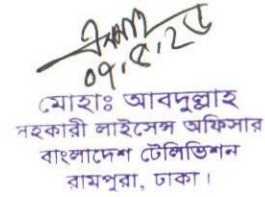 মোহাঃ আবদুল্লাহ
সহকারী লাইসেন্স অফিসার
বাংলাদেশ টেলিভিশন
রামপুরা, ঢাকা।